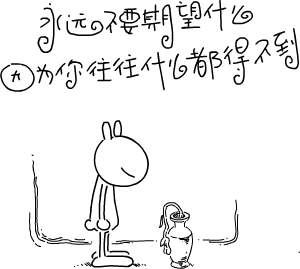 永远不要期望什么
因为你往往什么都得不到